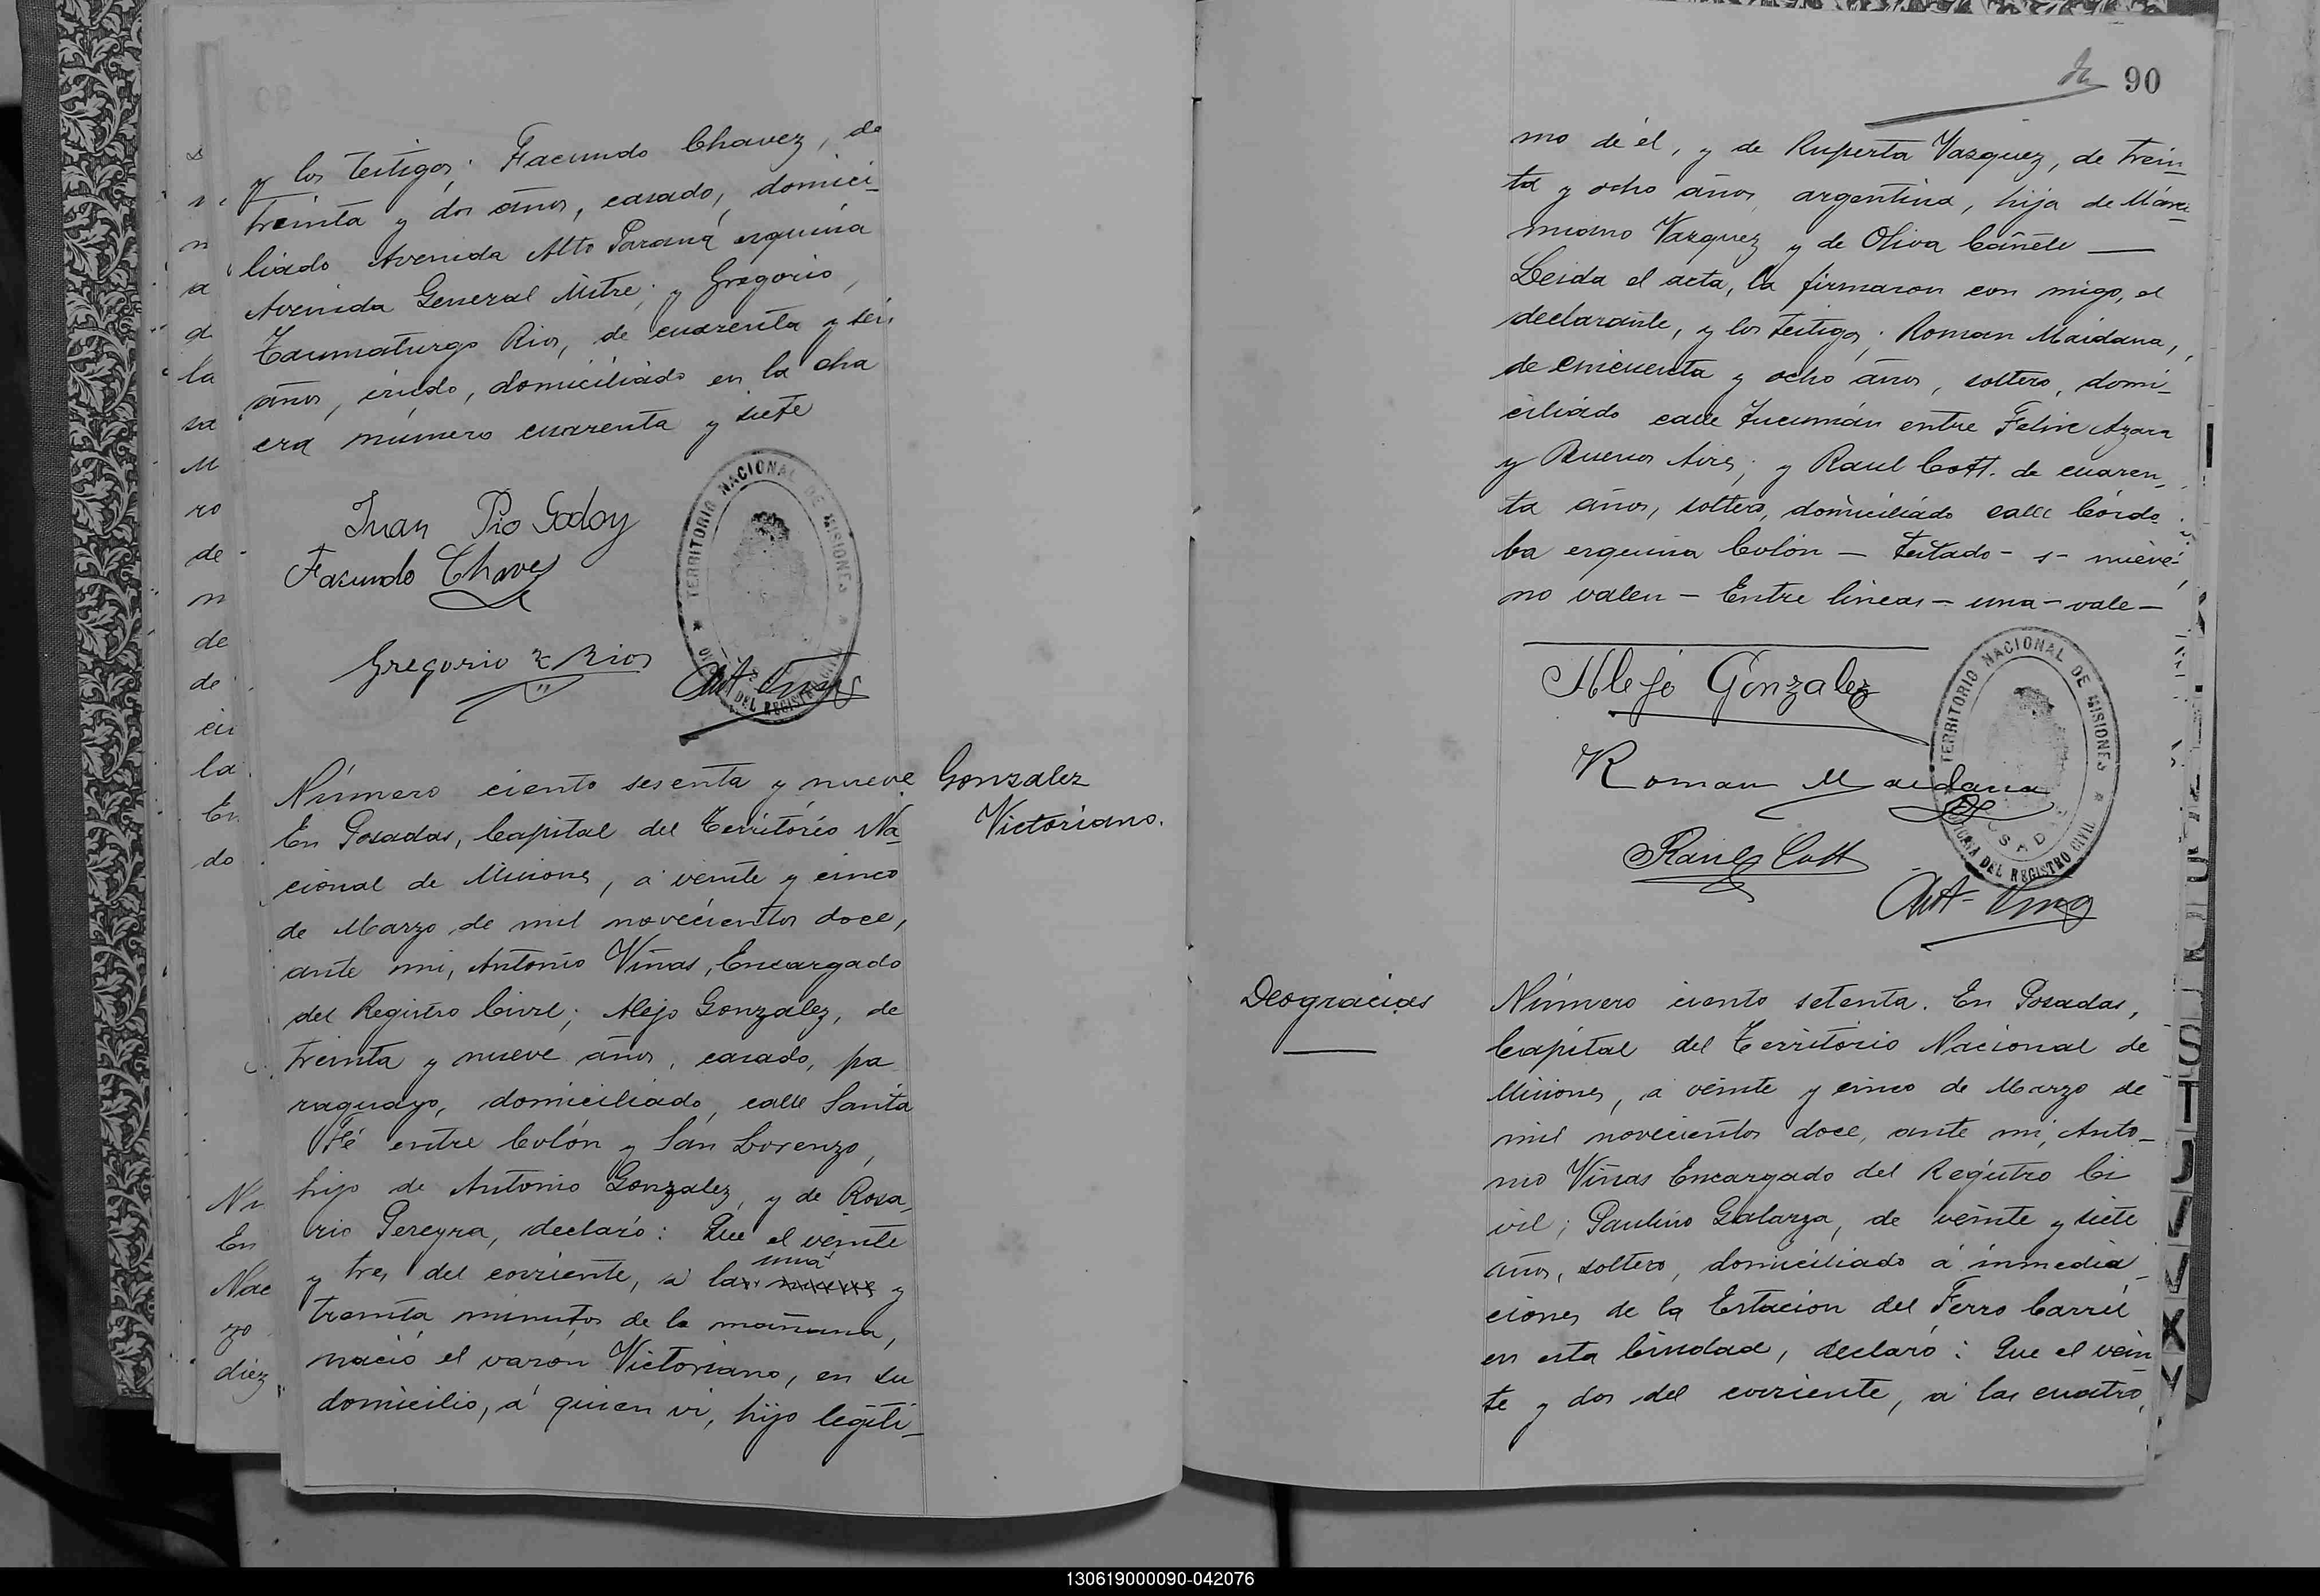 y los testigos; Facundo Chavez, de
treinta y dos años, casado, domici-
liado Avenida Alto Paraná esquina
Avenida General Mitre; y Gregorio
Taumaturgo Rios, de cuarenta y seis
años, viudo, domiciliado en la cha
cra número cuarenta y siete
Juan Pio Godoy
Facundo Chavez
Gregorio T. Rios
TERRITORIO NACIONAL DE MISIONES
OFICINA DEL REGISTRO CIVIL
Número ciento sesenta y nueve
En Posadas, Capital del Territorio Na-
cional de Misiones, á veinte y cinco
de Marzo de mil novecientos doce,
ante mi, Antonio Viñas, Encargado
del Registro Civil; Alejo González, de
treinta y nueve años, casado, pa-
raguayo, domiciliado, calle Santa
Fé entre Colón y San Lorenzo,
hijo de Antonio Gonzalez, y de Rosa-
rio Pereyra, declaró: Que el veinte
una
y tres del corriente, á las nueve y
treinta minutos de la mañana,
nació el varón Victoriano, en su
domicilio, á quien vi, hijo legíti-
Gonzalez
Victoriano.
90
mo de él, y de Ruperta Vazquez, de trein-
ta y ocho años, argentina, hija de Marci-
miano Vazquez y de Oliva Cañete —
Leida el acta, la firmaron con migo, el
declarante, y los testigos; Roman Maidana,
de cincuenta y ocho años, soltero, domi-
ciliado calle Tucumán entre Felix Azara
y Buenos Aires; y Raul Cott. de cuaren-
ta años, soltero, domiciliado calle Córdo-
ba esquina Colón — Testado - s - nueve -
no valen — Entre lineas — una — vale —
Alejo Gonzalez
Roman Maidana
Raul Cott
TERRITORIO NACIONAL DE MISIONES
POSADAS
OFICINA DEL REGISTRO CIVIL
Deogracias
Número ciento setenta. En Posadas,
Capital del Territorio Nacional de
Misiones, á veinte y cinco de Marzo de
mil novecientos doce, ante mi, Anto-
nio Viñas Encargado del Registro Ci
vil; Paulino Galarza, de veinte y siete
años, soltero, domiciliado á inmedia-
ciones de la Estacion del Ferro Carril
en esta Ciudad, declaró: Que el vein
te y dos del corriente, á las cuatro,
130619000090-042076